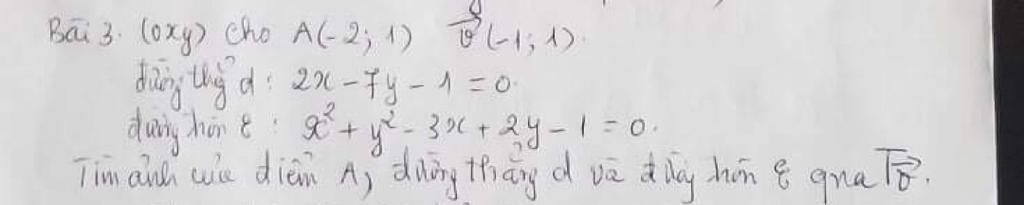 Bài 3. (oxy) cho A(-2; 1) v⃗(-1; 1).
đường thẳng d: 2x - 7y - 1 = 0.
đường tròn C: x² + y² - 3x + 2y - 1 = 0.
Tìm ảnh của điểm A, đường thẳng d và đường tròn C qua Tv⃗.